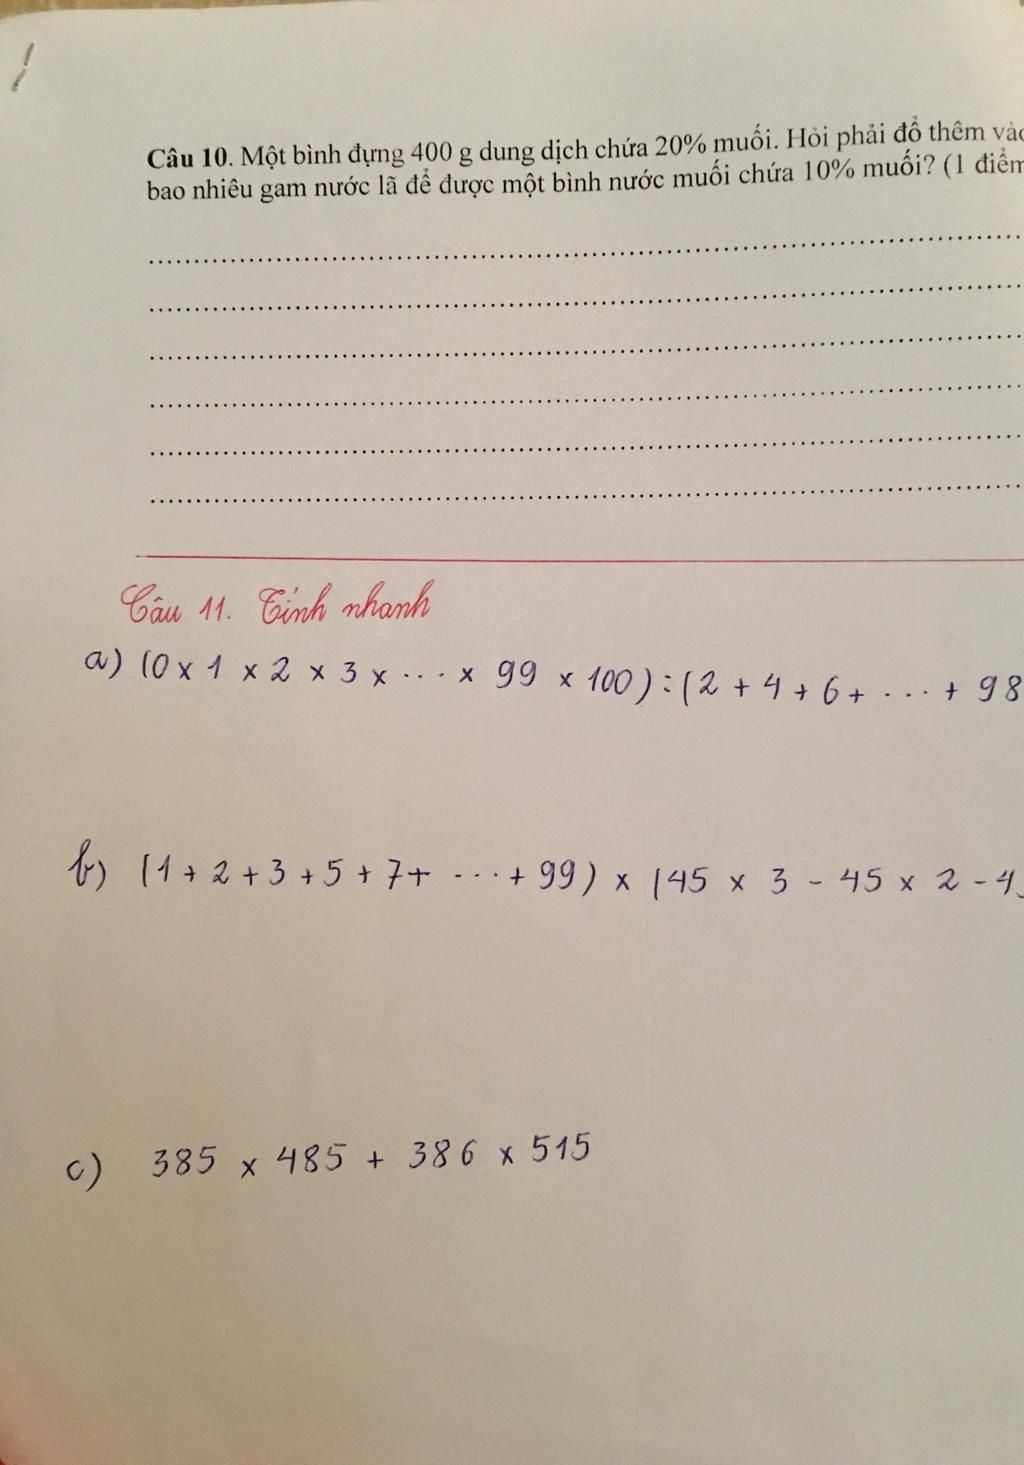 Câu 10. Một bình đựng 400 g dung dịch chứa 20% muối. Hỏi phải đổ thêm vào
bao nhiêu gam nước lã để được một bình nước muối chứa 10% muối? (1 điểm
Câu 11. Tính nhanh
a) (0 x 1 x 2 x 3 x ... x 99 x 100) : (2 + 4 + 6 + ... + 98
b) (1 + 2 + 3 + 5 + 7 + ... + 99) x (45 x 3 - 45 x 2 - 4
c) 385 x 485 + 386 x 515